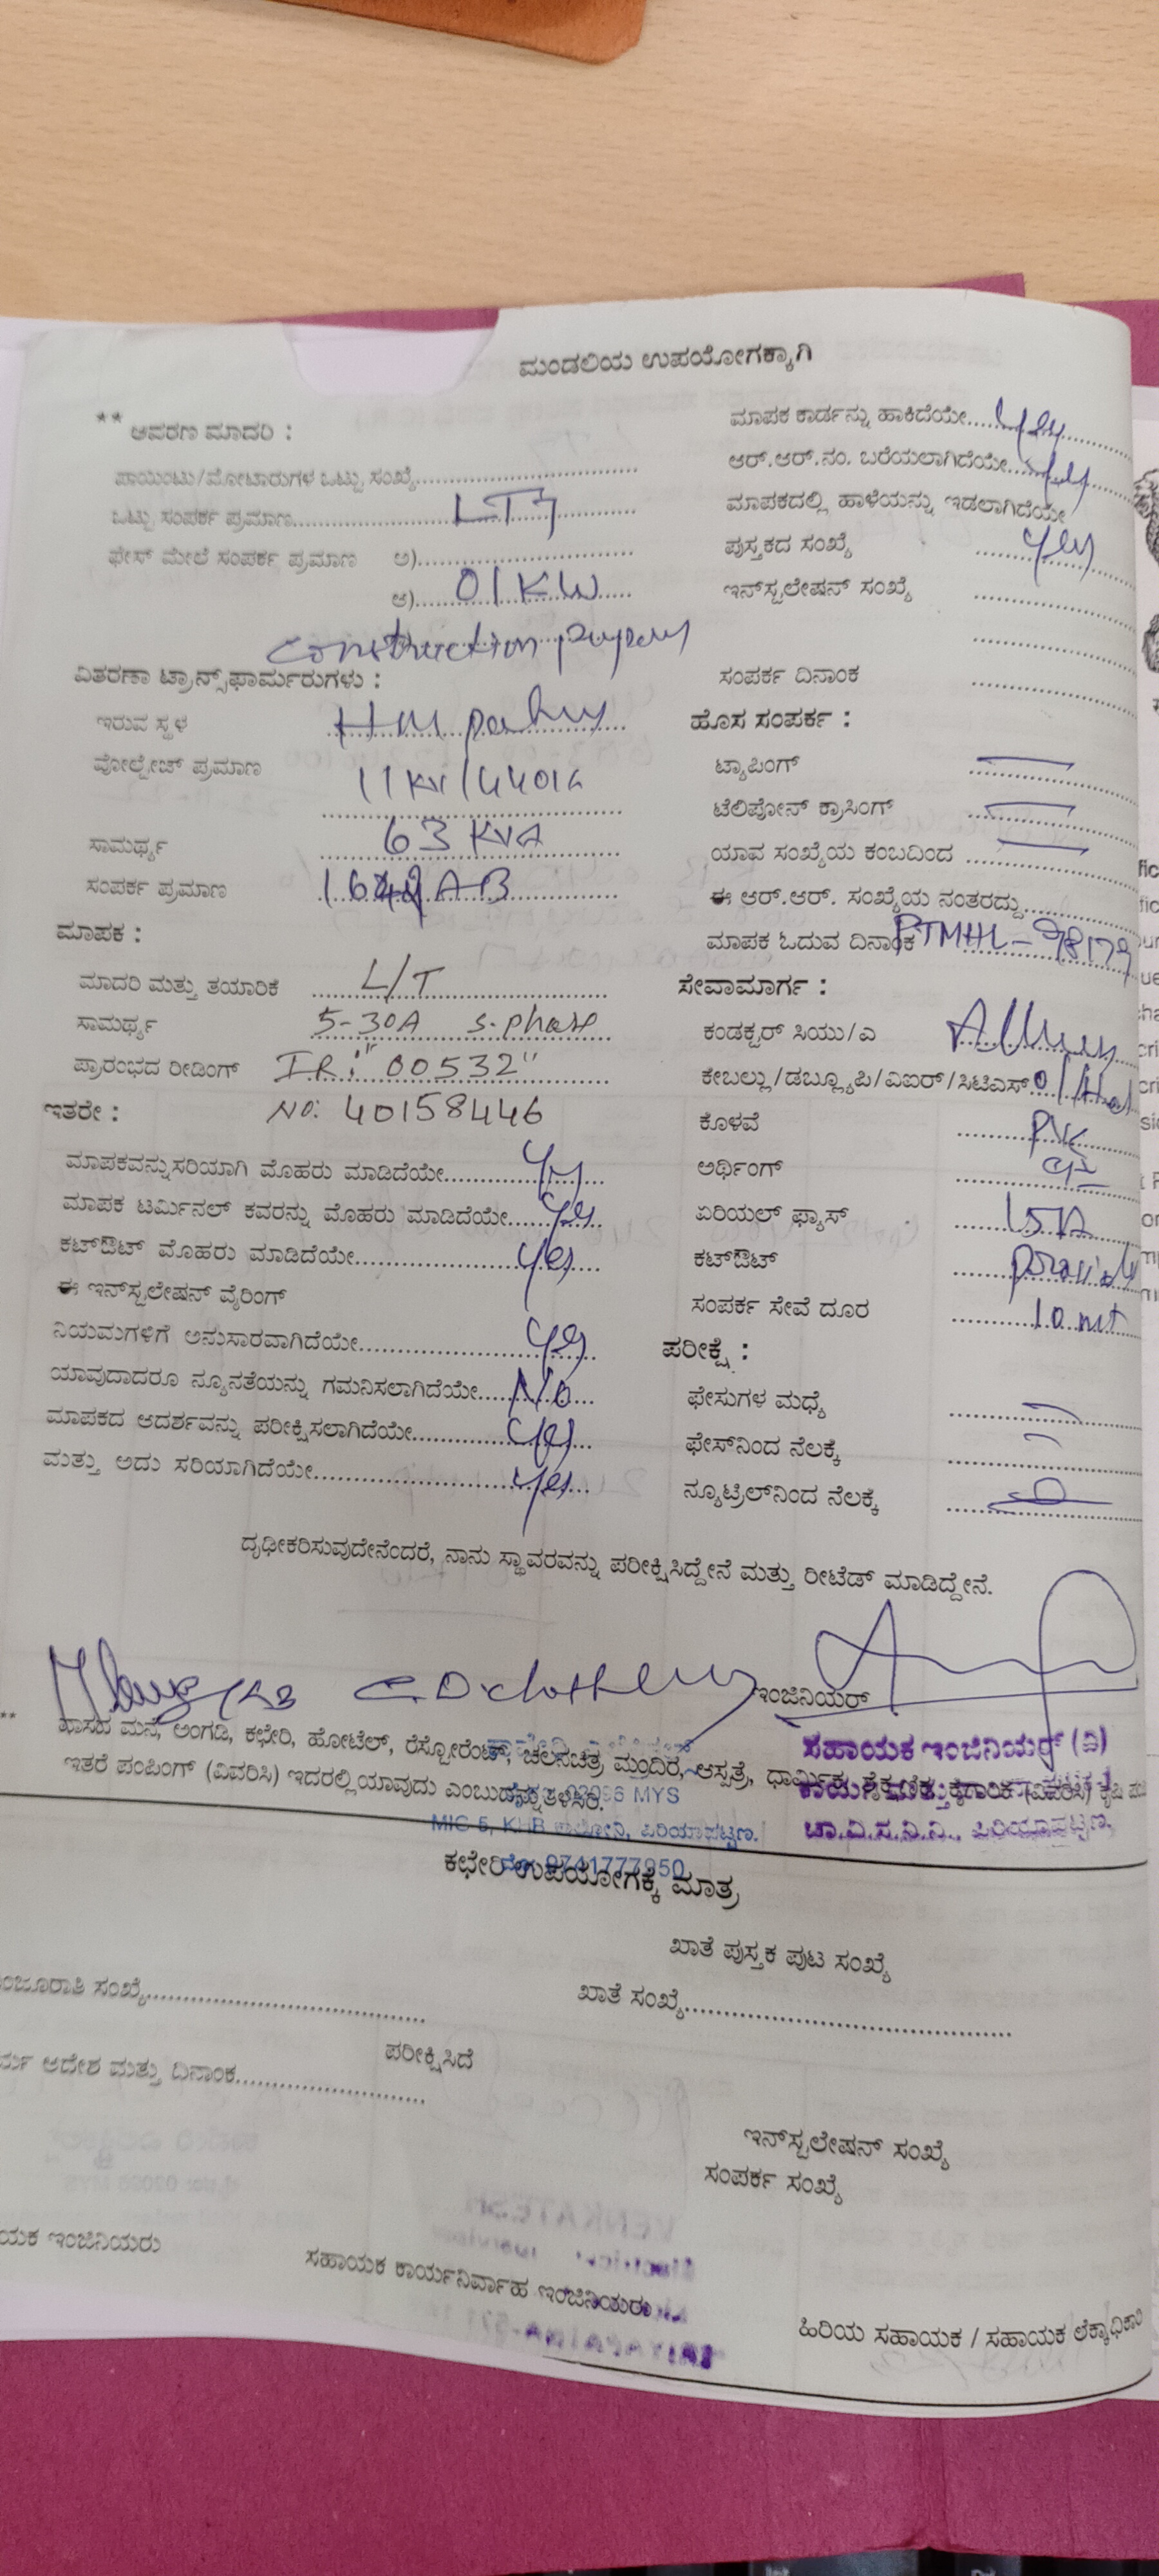 ಮಂಡಲಿಯ ಉಪಯೋಗಕ್ಕಾಗಿ
** ಆವರಣ ಮಾದರಿ :
ಪಾಯಿಂಟು/ಮೋಟಾರುಗಳ ಒಟ್ಟು ಸಂಖ್ಯೆ
ಒಟ್ಟು ಸಂಪರ್ಕ ಪ್ರಮಾಣ LT7
ಫೇಸ್ ಮೇಲೆ ಸಂಪರ್ಕ ಪ್ರಮಾಣ ಅ)
ಆ) 01 KW
Construction
ವಿತರಣಾ ಟ್ರಾನ್ಸ್‌ಫಾರ್ಮರುಗಳು :
ಇರುವ ಸ್ಥಳ
ವೋಲ್ಟೇಜ್ ಪ್ರಮಾಣ 11 KV/440
ಸಾಮರ್ಥ್ಯ 63 KVA
ಸಂಪರ್ಕ ಪ್ರಮಾಣ
ಮಾಪಕ :
ಮಾದರಿ ಮತ್ತು ತಯಾರಿಕೆ L/T
ಸಾಮರ್ಥ್ಯ 5-30A s.phase
ಪ್ರಾರಂಭದ ರೀಡಿಂಗ್ IR: "00532"
ಇತರೇ : NO: 40158446
ಮಾಪಕವನ್ನು ಸರಿಯಾಗಿ ಮೊಹರು ಮಾಡಿದೆಯೇ yes
ಮಾಪಕ ಟರ್ಮಿನಲ್ ಕವರನ್ನು ಮೊಹರು ಮಾಡಿದೆಯೇ yes
ಕಟ್‌ಔಟ್ ಮೊಹರು ಮಾಡಿದೆಯೇ yes
ಈ ಇನ್‌ಸ್ಟಲೇಷನ್ ವೈರಿಂಗ್
ನಿಯಮಗಳಿಗೆ ಅನುಸಾರವಾಗಿದೆಯೇ yes
ಯಾವುದಾದರೂ ನ್ಯೂನತೆಯನ್ನು ಗಮನಿಸಲಾಗಿದೆಯೇ No
ಮಾಪಕದ ಆದರ್ಶವನ್ನು ಪರೀಕ್ಷಿಸಲಾಗಿದೆಯೇ yes
ಮತ್ತು ಅದು ಸರಿಯಾಗಿದೆಯೇ yes
ಮಾಪಕ ಕಾರ್ಡನ್ನು ಹಾಕಿದೆಯೇ yes
ಆರ್.ಆರ್.ನಂ. ಬರೆಯಲಾಗಿದೆಯೇ yes
ಮಾಪಕದಲ್ಲಿ ಹಾಳೆಯನ್ನು ಇಡಲಾಗಿದೆಯೇ
ಪುಸ್ತಕದ ಸಂಖ್ಯೆ yes
ಇನ್‌ಸ್ಟಲೇಷನ್ ಸಂಖ್ಯೆ
ಸಂಪರ್ಕ ದಿನಾಂಕ
ಹೊಸ ಸಂಪರ್ಕ :
ಟ್ಯಾಪಿಂಗ್
ಟೆಲಿಪೋನ್ ಕ್ರಾಸಿಂಗ್
ಯಾವ ಸಂಖ್ಯೆಯ ಕಂಬದಿಂದ
ಈ ಆರ್.ಆರ್. ಸಂಖ್ಯೆಯ ನಂತರದ್ದು
ಮಾಪಕ ಓದುವ ದಿನಾಂಕ
ಸೇವಾಮಾರ್ಗ :
ಕಂಡಕ್ಟರ್ ಸಿಯು/ಎ
ಕೇಬಲ್ಲು/ಡಬ್ಲ್ಯೂಪಿ/ವಿಐಆರ್/ಸಿಟಿಎಸ್
ಕೊಳವೆ PVC
ಅರ್ಥಿಂಗ್
ಏರಿಯಲ್ ಫ್ಯೂಸ್ 15A
ಕಟ್‌ಔಟ್
ಸಂಪರ್ಕ ಸೇವೆ ದೂರ 10 mt
ಪರೀಕ್ಷೆ :
ಫೇಸುಗಳ ಮಧ್ಯೆ
ಫೇಸ್‌ನಿಂದ ನೆಲಕ್ಕೆ
ನ್ಯೂಟ್ರಿಲ್‌ನಿಂದ ನೆಲಕ್ಕೆ
ದೃಢೀಕರಿಸುವುದೇನೆಂದರೆ, ನಾನು ಸ್ಥಾವರವನ್ನು ಪರೀಕ್ಷಿಸಿದ್ದೇನೆ ಮತ್ತು ರೀಟೆಡ್ ಮಾಡಿದ್ದೇನೆ.
ಇಂಜಿನಿಯರ್
ಸಹಾಯಕ ಇಂಜಿನಿಯರ್ (ವಿ)
** ವಾಸದ ಮನೆ, ಅಂಗಡಿ, ಕಛೇರಿ, ಹೋಟೆಲ್, ರೆಸ್ಟೋರೆಂಟ್, ಚಲನಚಿತ್ರ ಮಂದಿರ, ಆಸ್ಪತ್ರೆ, ಧಾರ್ಮಿಕ,
ಇತರೆ ಪಂಪಿಂಗ್ (ವಿವರಿಸಿ) ಇದರಲ್ಲಿ ಯಾವುದು ಎಂಬುದನ್ನು ತಿಳಿಸಿರಿ.
MYS
ಚಾ.ವಿ.ಸ.ನಿ.ನಿ., ಪಿರಿಯಾಪಟ್ಟಣ.
MIG 5, KHB ಕಾಲೋನಿ, ಪಿರಿಯಾಪಟ್ಟಣ.
ಮೊ: 9741777950
ಕಛೇರಿ ಉಪಯೋಗಕ್ಕೆ ಮಾತ್ರ
ಖಾತೆ ಪುಸ್ತಕ ಪುಟ ಸಂಖ್ಯೆ
ಖಾತೆ ಸಂಖ್ಯೆ
ಂಜೂರಾತಿ ಸಂಖ್ಯೆ
ಆದೇಶ ಮತ್ತು ದಿನಾಂಕ
ಪರೀಕ್ಷಿಸಿದೆ
ಇನ್‌ಸ್ಟಲೇಷನ್ ಸಂಖ್ಯೆ
ಸಂಪರ್ಕ ಸಂಖ್ಯೆ
ಯಕ ಇಂಜಿನಿಯರು
ಸಹಾಯಕ ಕಾರ್ಯನಿರ್ವಾಹ ಇಂಜಿನಿಯರು
ಹಿರಿಯ ಸಹಾಯಕ / ಸಹಾಯಕ ಲೆಕ್ಕಾಧಿಕಾರಿ